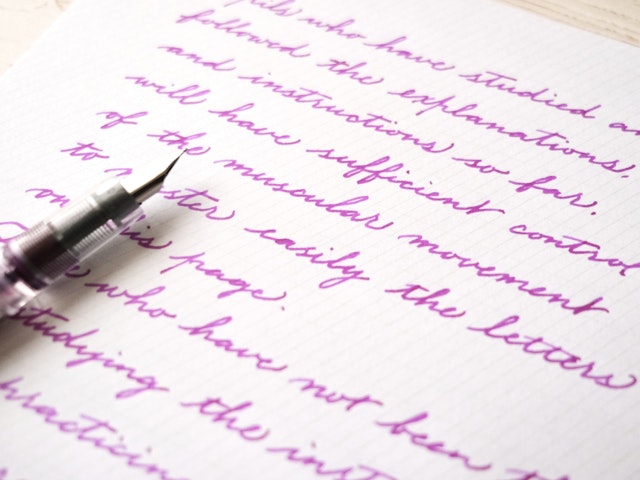 who have studied
followed the explanations,
and instructions so far,
will have sufficient control
of the muscular movement
to master easily the letters
on this page.
who have not been
studying the inst
practicin